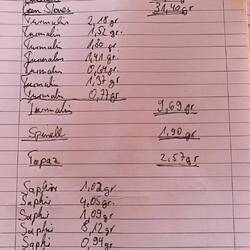 Gem Stones 31,40 gr
Turmalin 2,18 gr
Turmalin 1,52 gr.
Turmalin 1,80 gr.
Turmalin 1,41 gr.
Turmalin 0,64 gr.
Turmalin 1,37 gr
Turmalin 0,77 gr
Turmalin 9,69 gr
Spinell 1,90 gr
Topaz 2,57 gr
Saphir 1,02 gr
Saphir 4,05 gr.
Saphir 1,09 gr
Saphir 8,12 gr
Saphir 0,94 gr